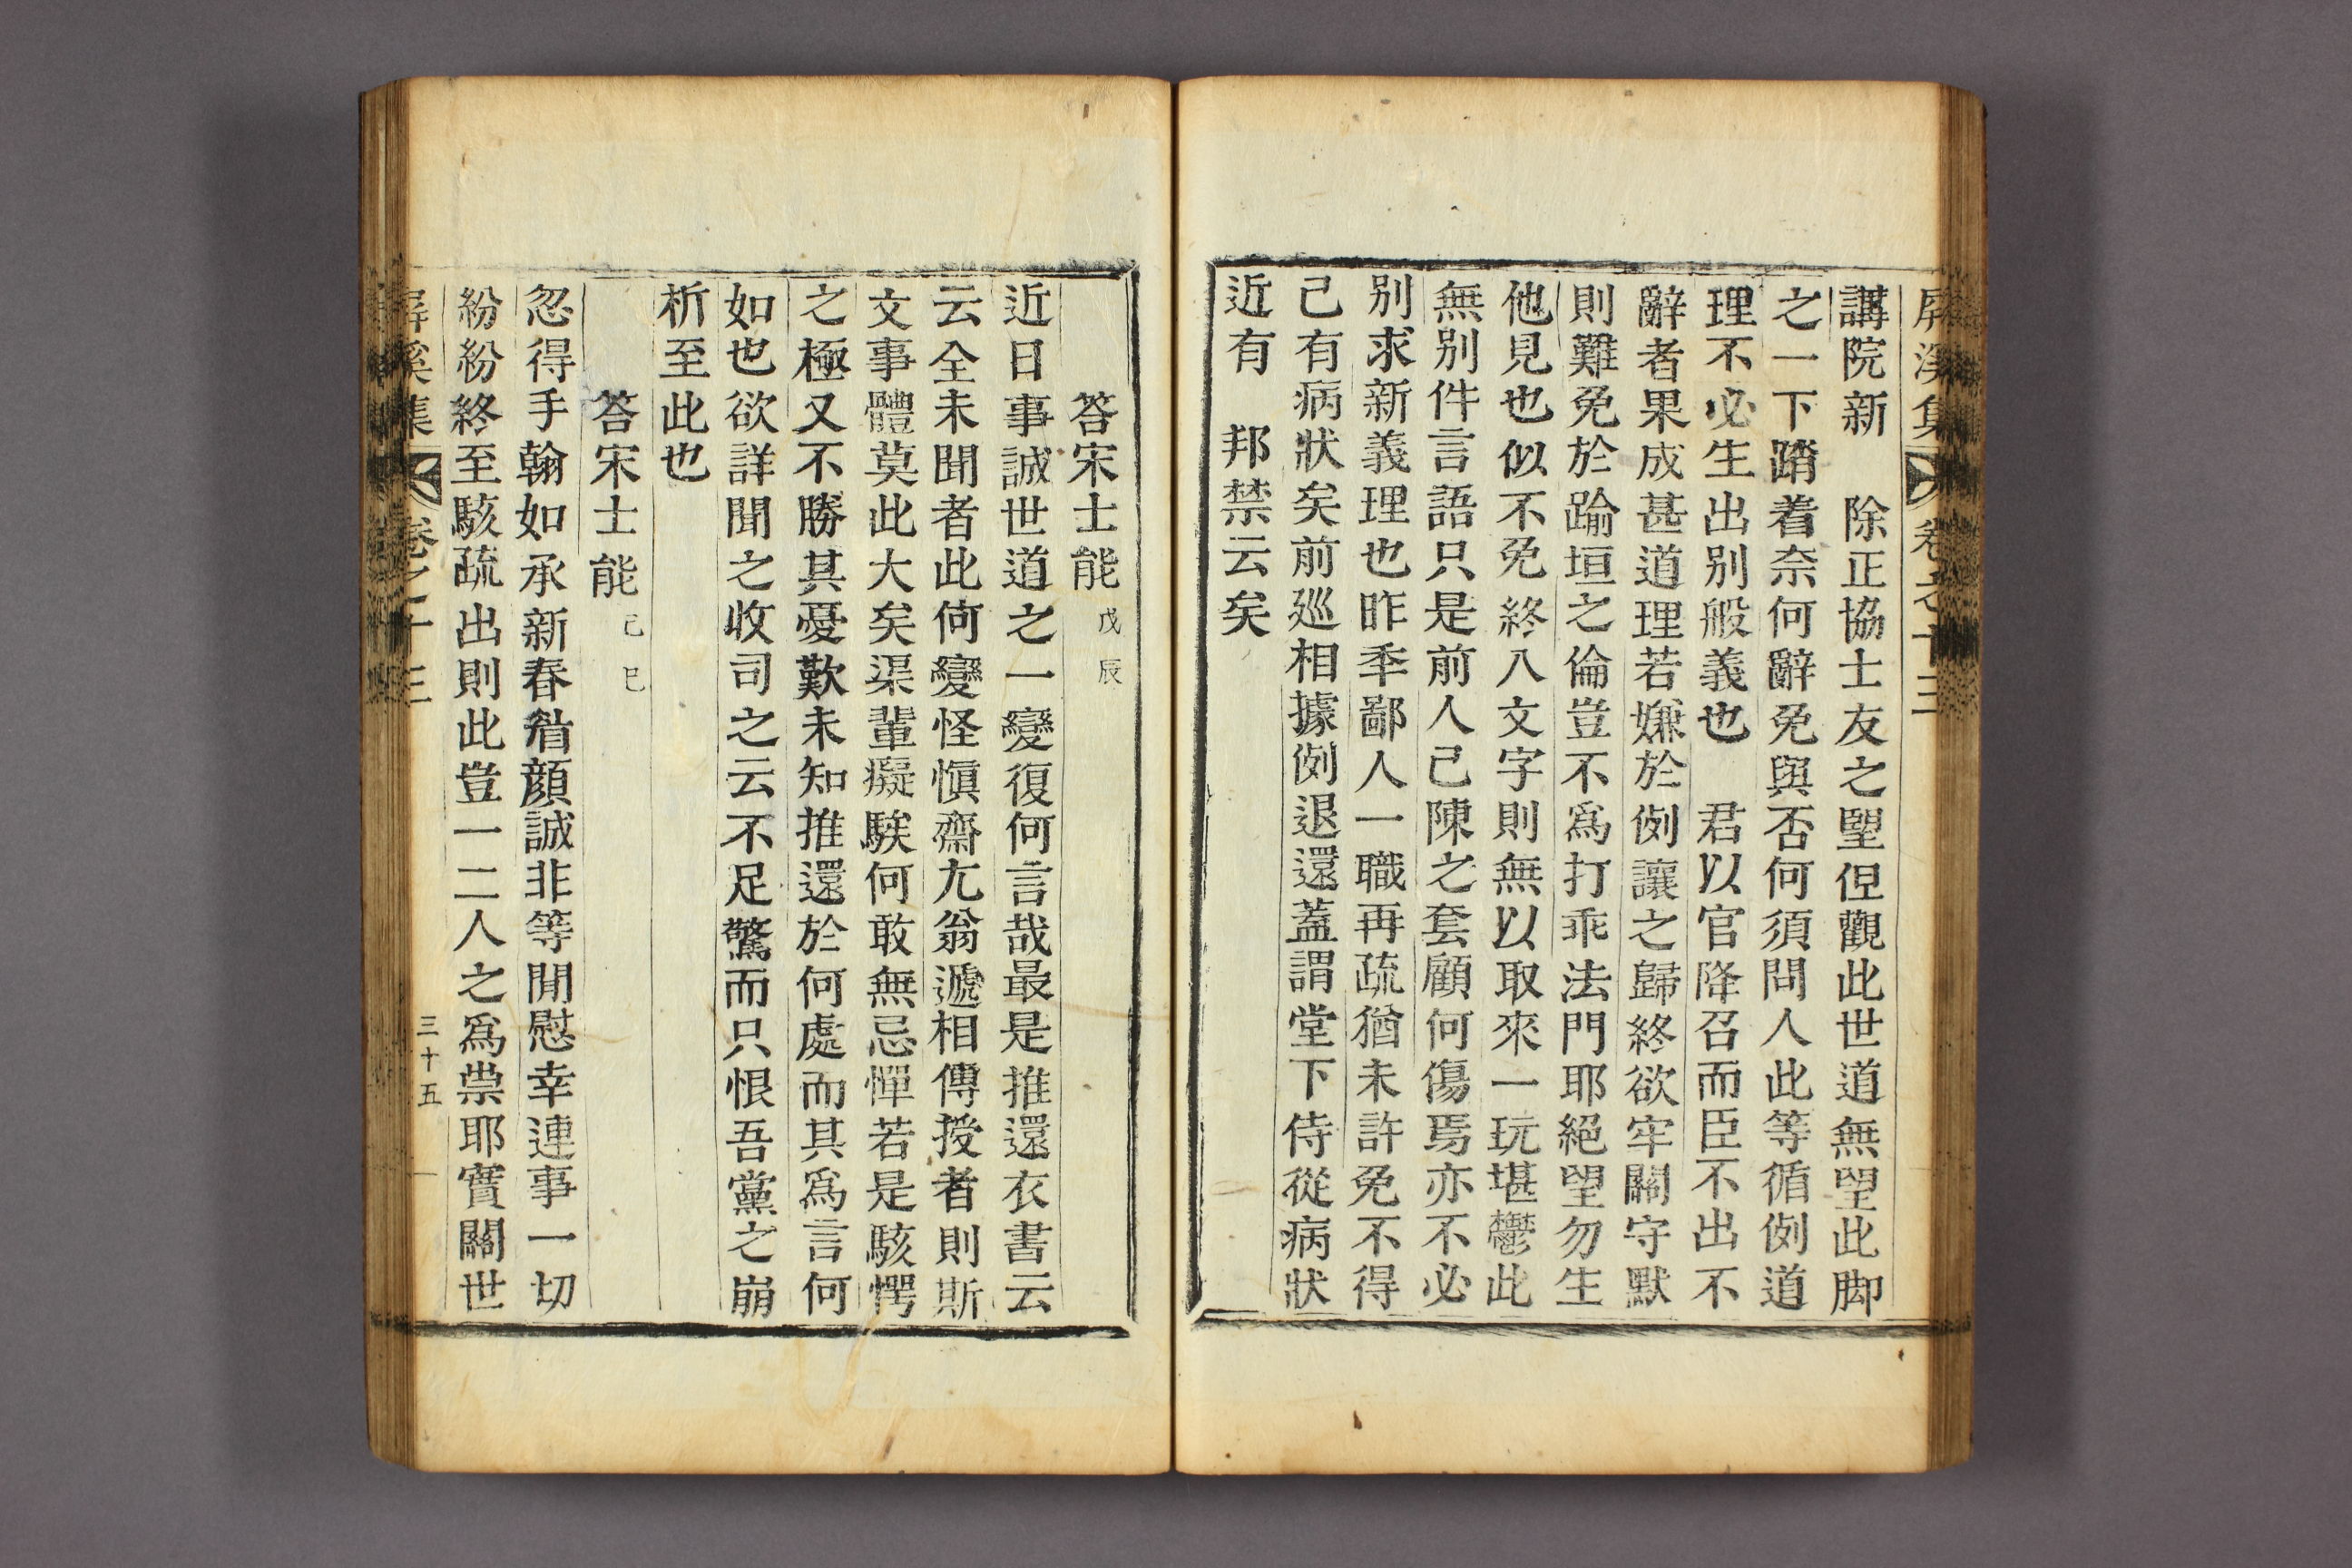 屏溪集 卷之十三
講院新 除正協士友之望但觀此世道無望此脚
之一下蹐着奈何辭免與否何須問人此等循例道
理不必生出别般義也 君以官降召而臣不出不
辭者果成甚道理若嫌於例讓之歸終欲牢關守默
則難免於踰垣之倫豈不爲打乖法門耶絕望勿生
他見也似不免終八文字則無以取來一玩堪鬱此
無别件言語只是前人己陳之套顧何傷焉亦不必
别求新義理也昨秊鄙人一職再疏猶未許免不得
己有病狀矣前廵相據例退還蓋謂堂下侍從病狀
近有 邦禁云矣
答宋士能 戊辰
近日事誠世道之一變復何言哉最是推還衣書云
云全未聞者此何變怪愼齋尤翁遞相傳授者則斯
文事體莫此大矣渠輩癡騃何敢無忌憚若是駭愕
之極又不勝其憂歎未知推還於何處而其爲言何
如也欲詳聞之收司之云不足驚而只恨吾黨之崩
析至此也
答宋士能 己巳
忽得手翰如承新春眉顔誠非等閒慰幸連事一切
紛紛終至駭疏出則此豈一二人之爲祟耶實關世
屏溪集 卷之十三 三十五